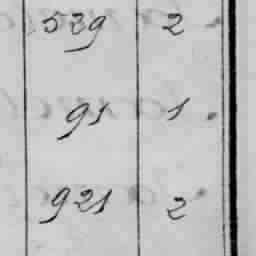 539 2
91 1
921 2